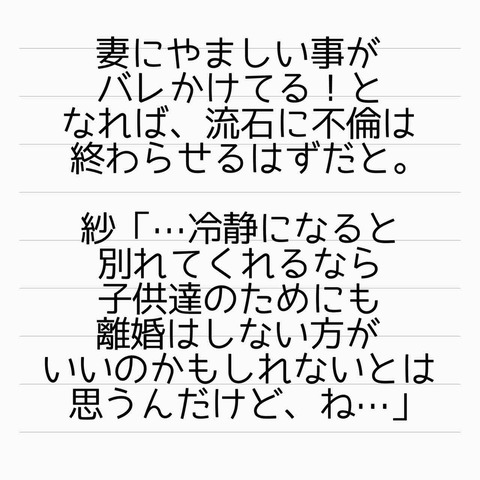 妻にやましい事が
バレかけてる！と
なれば、流石に不倫は
終わらせるはずだと。
紗「…冷静になると
別れてくれるなら
子供達のためにも
離婚はしない方が
いいのかもしれないとは
思うんだけど、ね…」